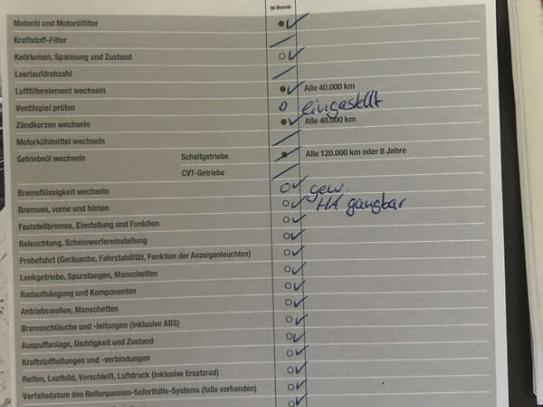 96 Monate
Motoröl und Motorölfilter
Kraftstoff-Filter
Keilriemen, Spannung und Zustand
Leerlaufdrehzahl
Luftfilterelement wechseln Alle 40.000 km
Ventilspiel prüfen eingestellt
Zündkerzen wechseln Alle 40.000 km
Motorkühlmittel wechseln
Getriebeöl wechseln Schaltgetriebe Alle 120.000 km oder 8 Jahre
CVT-Getriebe
Bremsflüssigkeit wechseln gew.
Bremsen, vorne und hinten HA gangbar
Feststellbremse, Einstellung und Funktion
Beleuchtung, Scheinwerfereinstellung
Probefahrt (Geräusche, Fahrstabilität, Funktion der Anzeigenleuchten)
Lenkgetriebe, Spurstangen, Manschetten
Radaufhängung und Komponenten
Antriebswellen, Manschetten
Bremsschläuche und -leitungen (inklusive ABS)
Auspuffanlage, Dichtigkeit und Zustand
Kraftstoffleitungen und -verbindungen
Reifen, Laufbild, Verschleiß, Luftdruck (inklusive Ersatzrad)
Verfallsdatum des Reifenpannen-Soforthilfe-Systems (falls vorhanden)